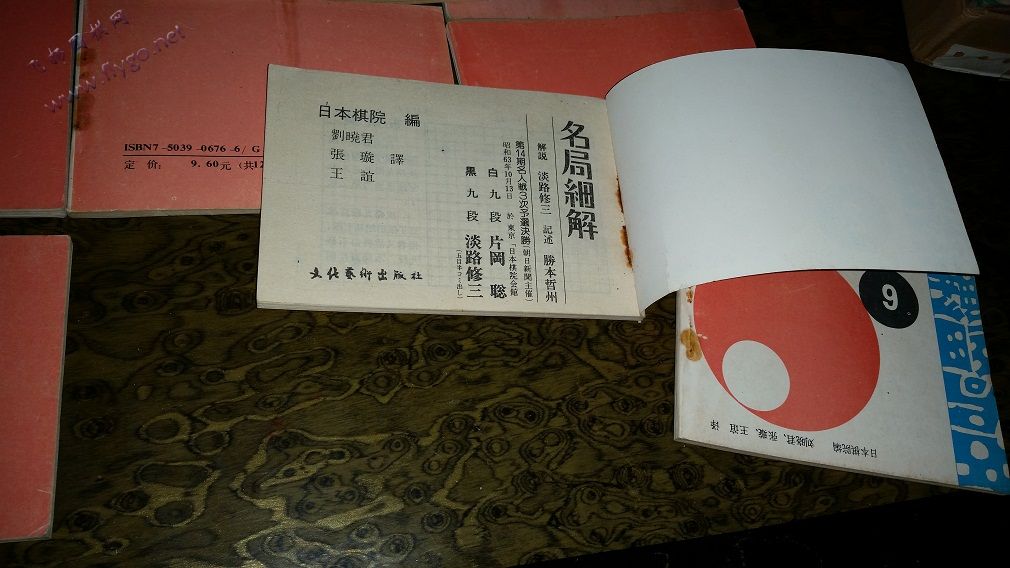 飞扬围棋网
www.flygo.net
ISBN7-5039-0676-6/G
定价: 9.60元(共12
名局細解
解説 淡路修三 記述 勝本哲州
第14期名人戦3次予選決勝(朝日新聞主催)
昭和63年10月13日 於 東京「日本棋院会館
白 九段 片岡 聡
黒 九段 淡路修三
(五目半コミ出し)
日本棋院 編
劉曉君
張璇 譯
王誼
文化藝術出版社
9
日本棋院编
刘晓君、张璇、王谊 译